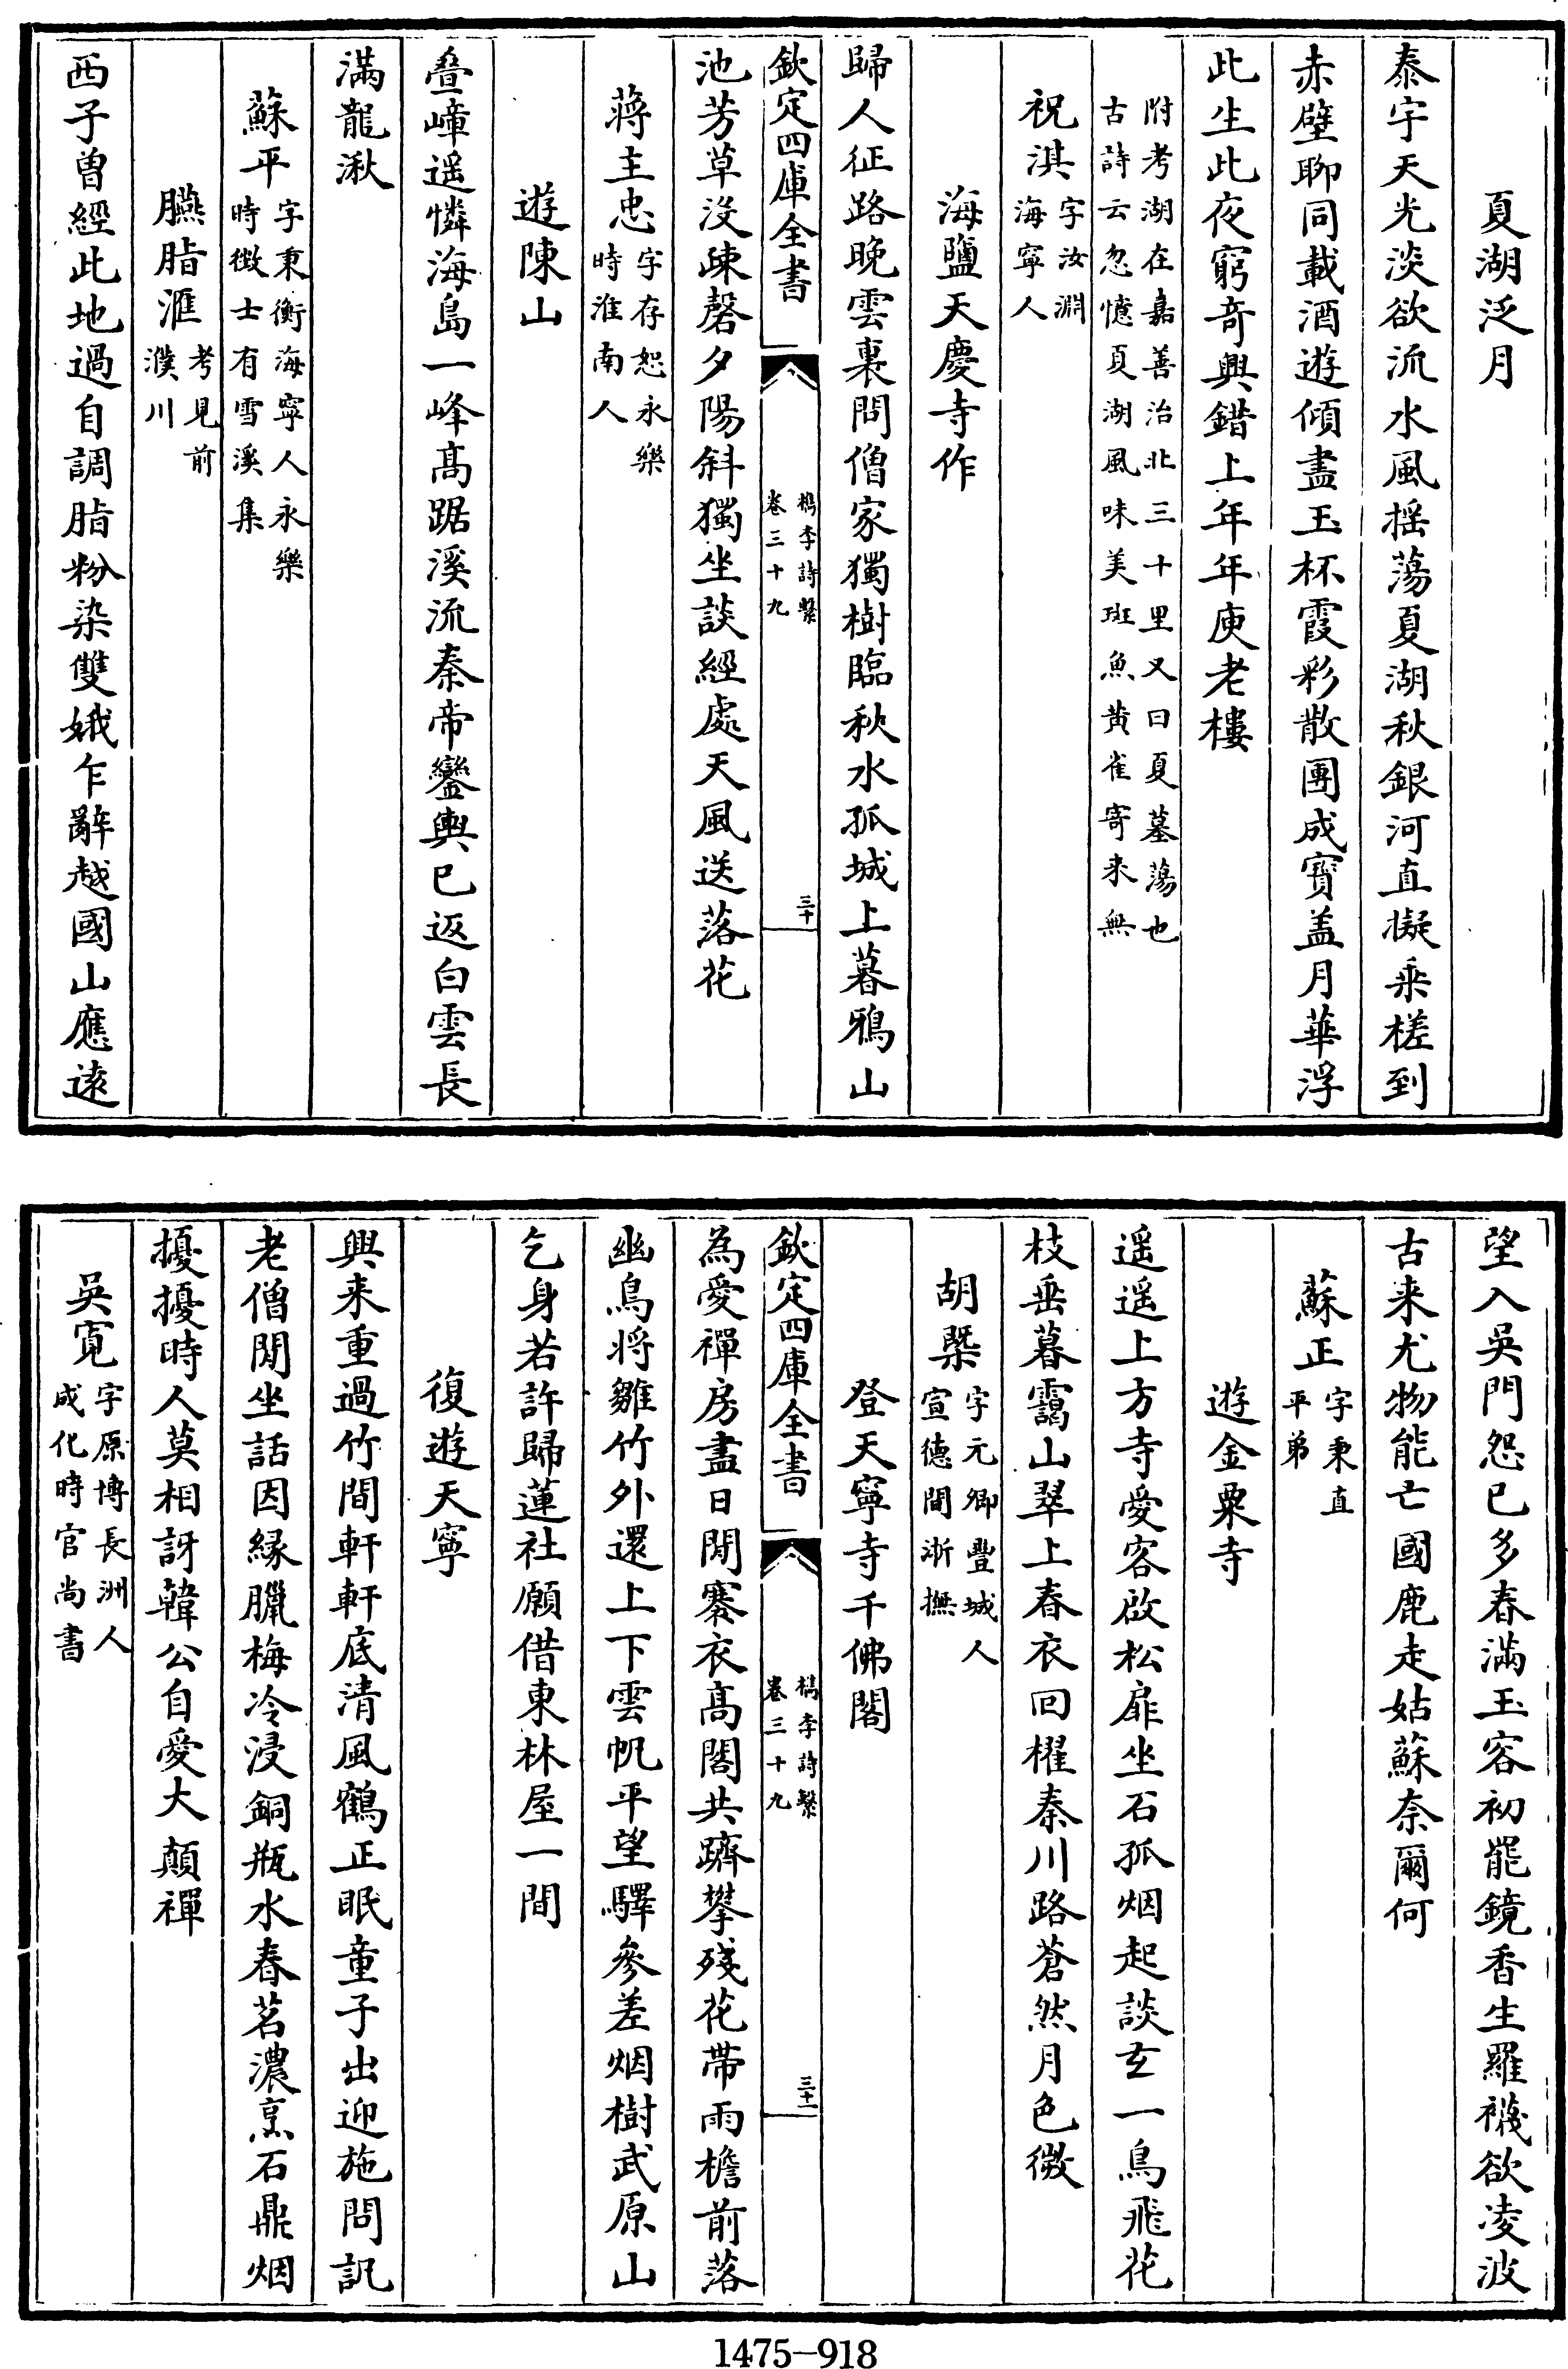 夏湖泛月
泰宇天光淡欲流水風揺蕩夏湖秋銀河直擬乗槎到
赤壁聊同載酒遊傾盡玉杯霞彩散團成寳盖月華浮
此生此夜窮竒興錯上年年庾老樓
附考湖在嘉善治北三十里又曰夏墓蕩也
古詩云忽憶夏湖風味美斑魚黄雀寄来無
祝淇字汝淵
海寧人
海鹽天慶寺作
歸人征路晚雲裏問僧家獨樹臨秋水孤城上暮鴉山
欽定四庫全書
檇李詩繫
卷三十九
三十
池芳草没疎磬夕陽斜獨坐談經處天風送落花
蔣主忠字存恕永樂
時淮南人
遊陳山
疊嶂遥憐海島一峰髙踞溪流秦帝鑾輿已返白雲長
滿龍湫
蘇平字秉衡海寧人永樂
時徴士有雪溪集
臙脂滙考見前
濮川
西子曽經此地過自調脂粉染雙娥乍辭越國山應逺
望入吳門怨已多春滿玉容初罷鏡香生羅襪欲凌波
古来尤物能亡國鹿走姑蘇奈爾何
蘇正字秉直
平弟
遊金粟寺
遥遥上方寺愛客啟松扉坐石孤烟起談𤣥一鳥飛花
枝垂暮靄山翠上春衣回櫂秦川路蒼然月色微
胡槩字元卿豐城人
宣德間浙撫
登天寧寺千佛閣
欽定四庫全書
檇李詩繫
卷三十九
三十一
為愛禪房盡日閒褰衣髙閣共躋攀殘花帶雨檐前落
幽鳥将雛竹外還上下雲帆平望驛參差烟樹武原山
乞身若許歸蓮社願借東林屋一間
復遊天寧
興来重過竹間軒軒底清風鶴正眠童子出迎施問訊
老僧閒坐話因縁臘梅冷浸銅瓶水春茗濃烹石鼎烟
擾擾時人莫相訝韓公自愛大顛禪
吳寛字原博長洲人
成化時官尚書
1475-918